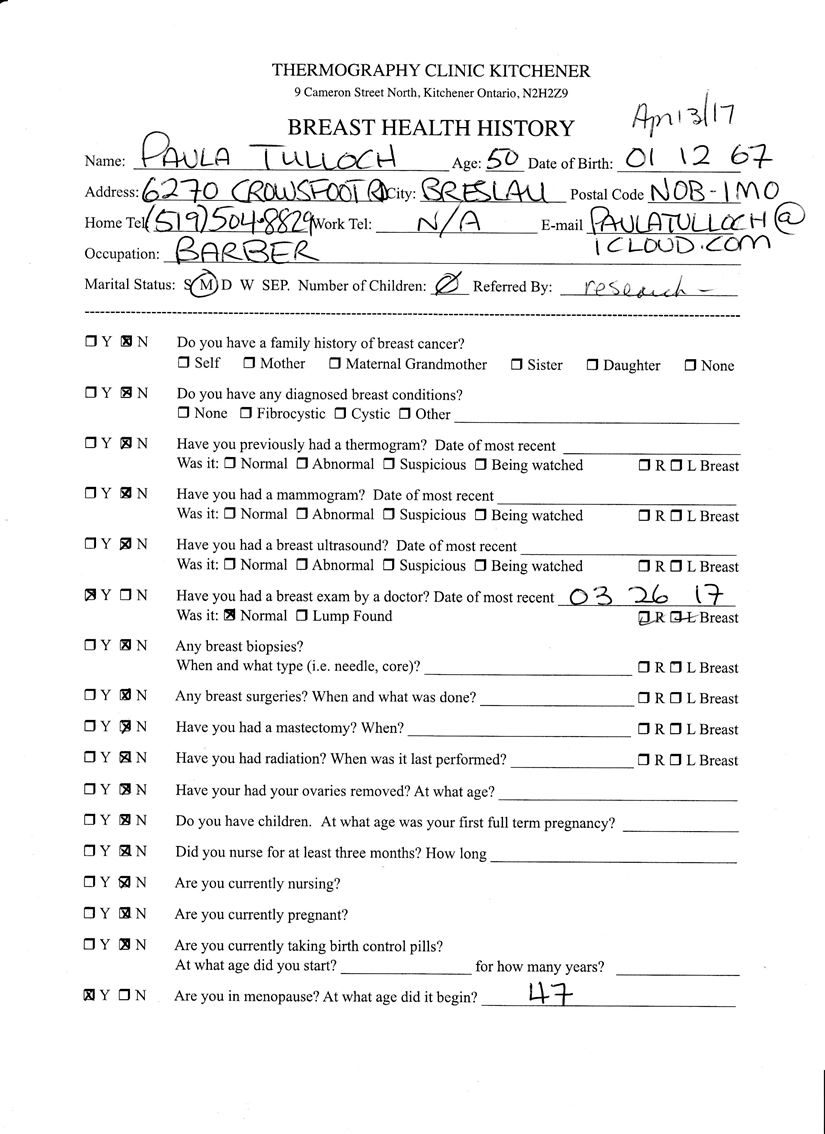 THERMOGRAPHY CLINIC KITCHENER
9 Cameron Street North, Kitchener Ontario, N2H2Z9
Apr 13/17
BREAST HEALTH HISTORY
Name: PAULA TULLOCH Age: 50 Date of Birth: 01 12 67
Address: 6270 CROWSFOOT RD City: BRESLAU Postal Code N0B-1M0
Home Tel (519) 504-8829 Work Tel: N/A E-mail PAULATULLOCH@
ICLOUD.COM
Occupation: BARBER
Marital Status: S M D W SEP. Number of Children: 0 Referred By: research -
☐ Y ☒ N Do you have a family history of breast cancer?
☐ Self ☐ Mother ☐ Maternal Grandmother ☐ Sister ☐ Daughter ☐ None
☐ Y ☒ N Do you have any diagnosed breast conditions?
☐ None ☐ Fibrocystic ☐ Cystic ☐ Other
☐ Y ☒ N Have you previously had a thermogram? Date of most recent
Was it: ☐ Normal ☐ Abnormal ☐ Suspicious ☐ Being watched ☐ R ☐ L Breast
☐ Y ☒ N Have you had a mammogram? Date of most recent
Was it: ☐ Normal ☐ Abnormal ☐ Suspicious ☐ Being watched ☐ R ☐ L Breast
☐ Y ☒ N Have you had a breast ultrasound? Date of most recent
Was it: ☐ Normal ☐ Abnormal ☐ Suspicious ☐ Being watched ☐ R ☐ L Breast
☒ Y ☐ N Have you had a breast exam by a doctor? Date of most recent 03 26 17
Was it: ☒ Normal ☐ Lump Found ☐ R ☐ L Breast
☐ Y ☒ N Any breast biopsies?
When and what type (i.e. needle, core)? ☐ R ☐ L Breast
☐ Y ☒ N Any breast surgeries? When and what was done? ☐ R ☐ L Breast
☐ Y ☒ N Have you had a mastectomy? When? ☐ R ☐ L Breast
☐ Y ☒ N Have you had radiation? When was it last performed? ☐ R ☐ L Breast
☐ Y ☒ N Have your had your ovaries removed? At what age?
☐ Y ☒ N Do you have children. At what age was your first full term pregnancy?
☐ Y ☒ N Did you nurse for at least three months? How long
☐ Y ☒ N Are you currently nursing?
☐ Y ☒ N Are you currently pregnant?
☐ Y ☒ N Are you currently taking birth control pills?
At what age did you start? for how many years?
☒ Y ☐ N Are you in menopause? At what age did it begin? 47